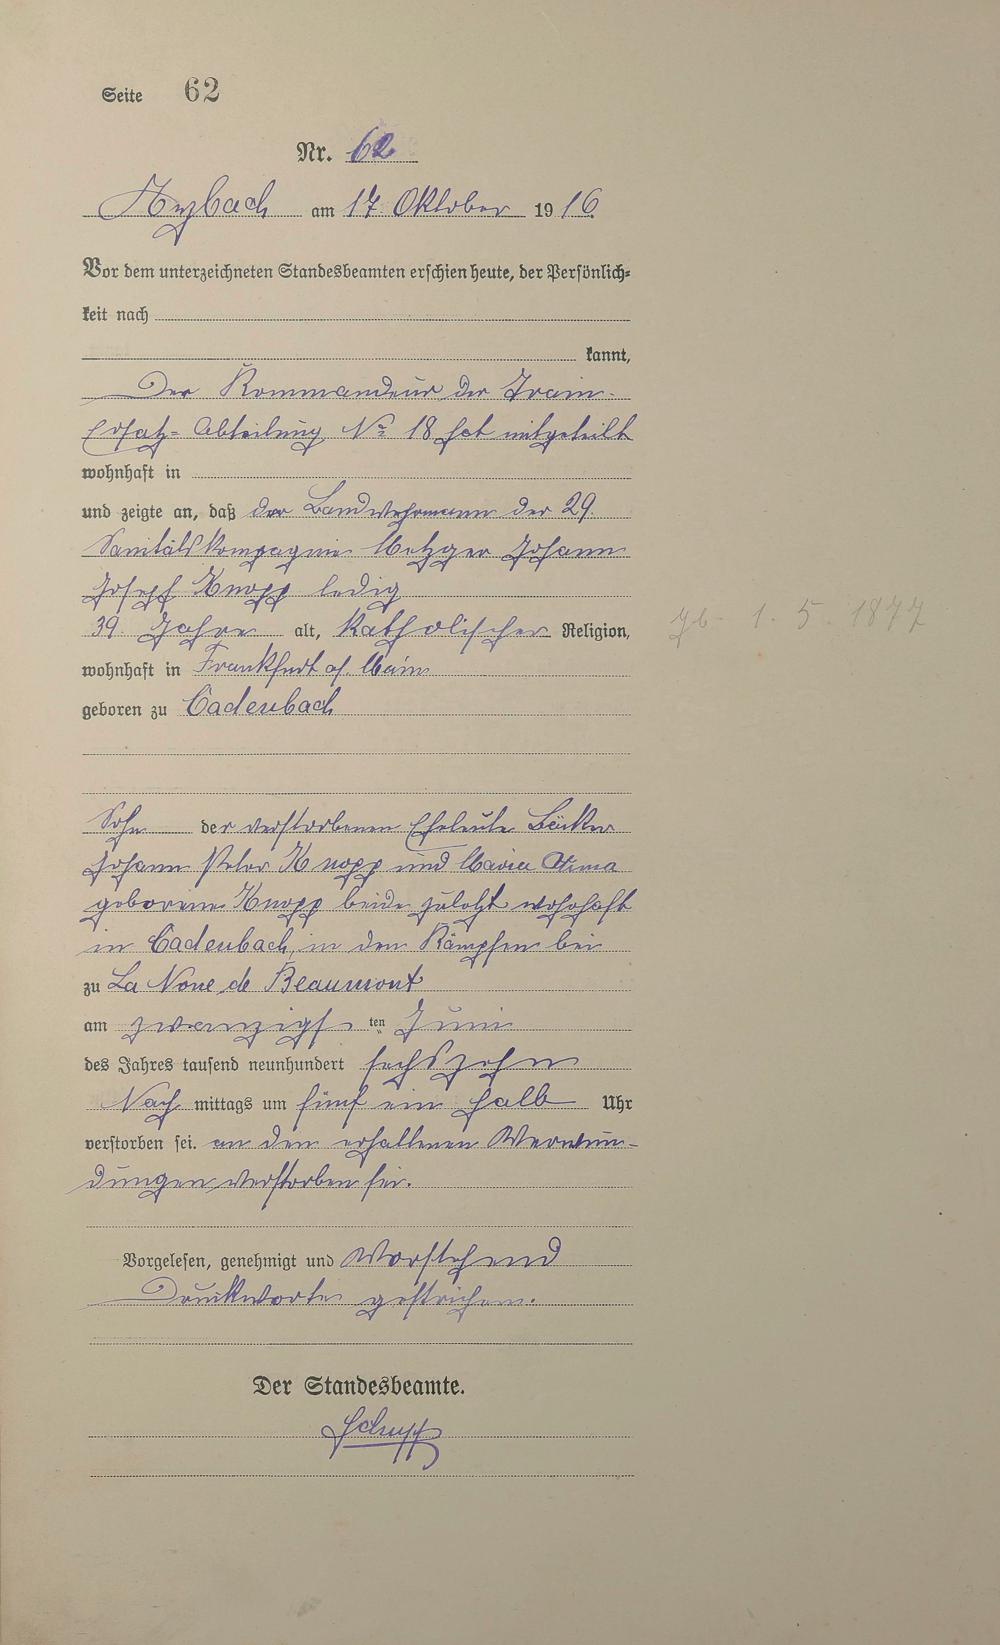 Seite 62
Nr. 62
Arzbach am 17. Oktober 1916.
Vor dem unterzeichneten Standesbeamten erschien heute, der Persönlich-
keit nach
kannt,
Der Kommandeur der Train-
Ersatz-Abteilung No 18 hat mitgeteilt
wohnhaft in
und zeigte an, daß der Landwehrmann der 29.
Sanitätskompagnie Metzger Johann
Joseph Knopp ledig
39 Jahre alt, katholischer Religion,
gb. 1. 5. 1877
wohnhaft in Frankfurt a/. Main
geboren zu Cadenbach
Sohn der verstorbenen Eheleute Bäcker
Johann Peter Knopp und Maria Anna
geborene Knopp beide zuletzt wohnhaft
in Cadenbach, in den Kämpfen bei
zu La None de Beaumont
am zwanzigsten Juni
des Jahres tausend neunhundert sechszehn
Nachmittags um fünf ein halb Uhr
verstorben sei. an den erhaltenen Verwun-
dungen verstorben sei.
Vorgelesen, genehmigt und Vorstehend
Druckworte gestrichen.
Der Standesbeamte.